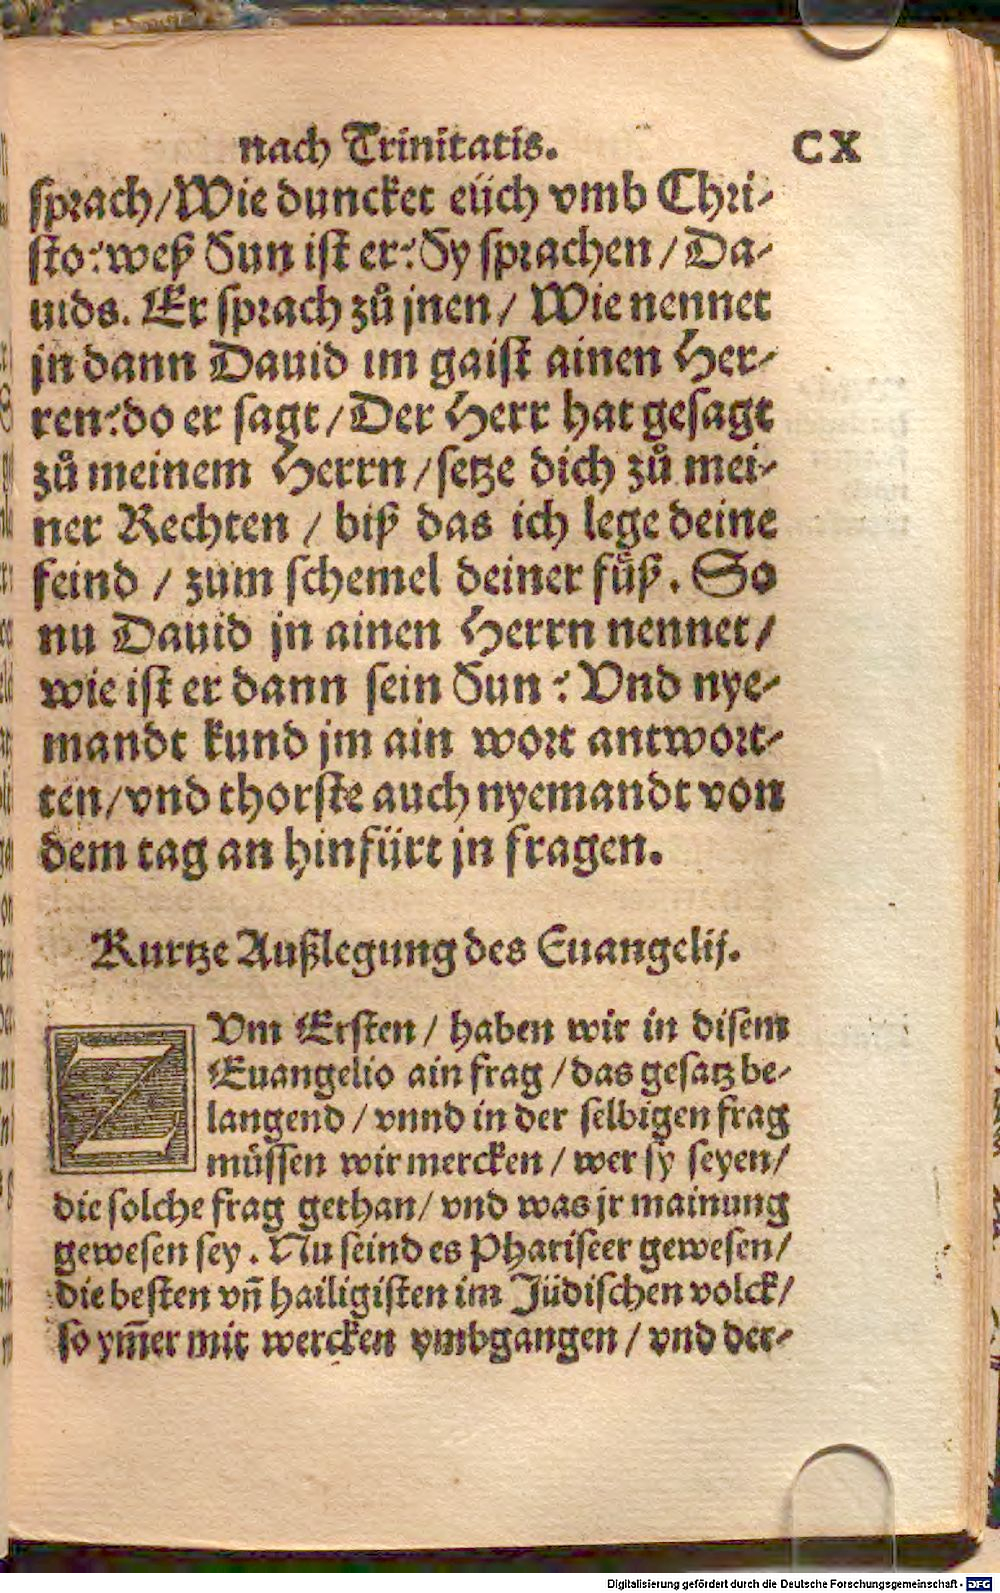 nach Trinitatis. CX
sprach/Wie duncket eüch vmb Chri-
sto? weß Sun ist er? Sy sprachen / Da-
uids. Er sprach zů jnen / Wie nennet
jn dann Dauid im gaist ainen Her-
ren? do er sagt / Der Herr hat gesagt
zů meinem Herrn / setze dich zů mei-
ner Rechten / biß das ich lege deine
feind / zum schemel deiner füß. So
nu Dauid jn ainen Herrn nennet /
wie ist er dann sein Sun? Vnd nye-
mandt kund jm ain wort antwort-
ten / vnd thorste auch nyemandt von
dem tag an hinfürt jn fragen.
Kurtze Außlegung des Euangelij.
ZVm Ersten / haben wir in disem
Euangelio ain frag / das gesatz be-
langend / vnnd in der selbigen frag
müssen wir mercken / wer sy seyen /
die solche frag gethan / vnd was jr mainung
gewesen sey. Nu seind es Phariseer gewesen /
die besten vn̄ hailigisten im Jüdischen volck /
so ym̄er mit wercken vmbgangen / vnd der-
Digitalisierung gefördert durch die Deutsche Forschungsgemeinschaft - DFG